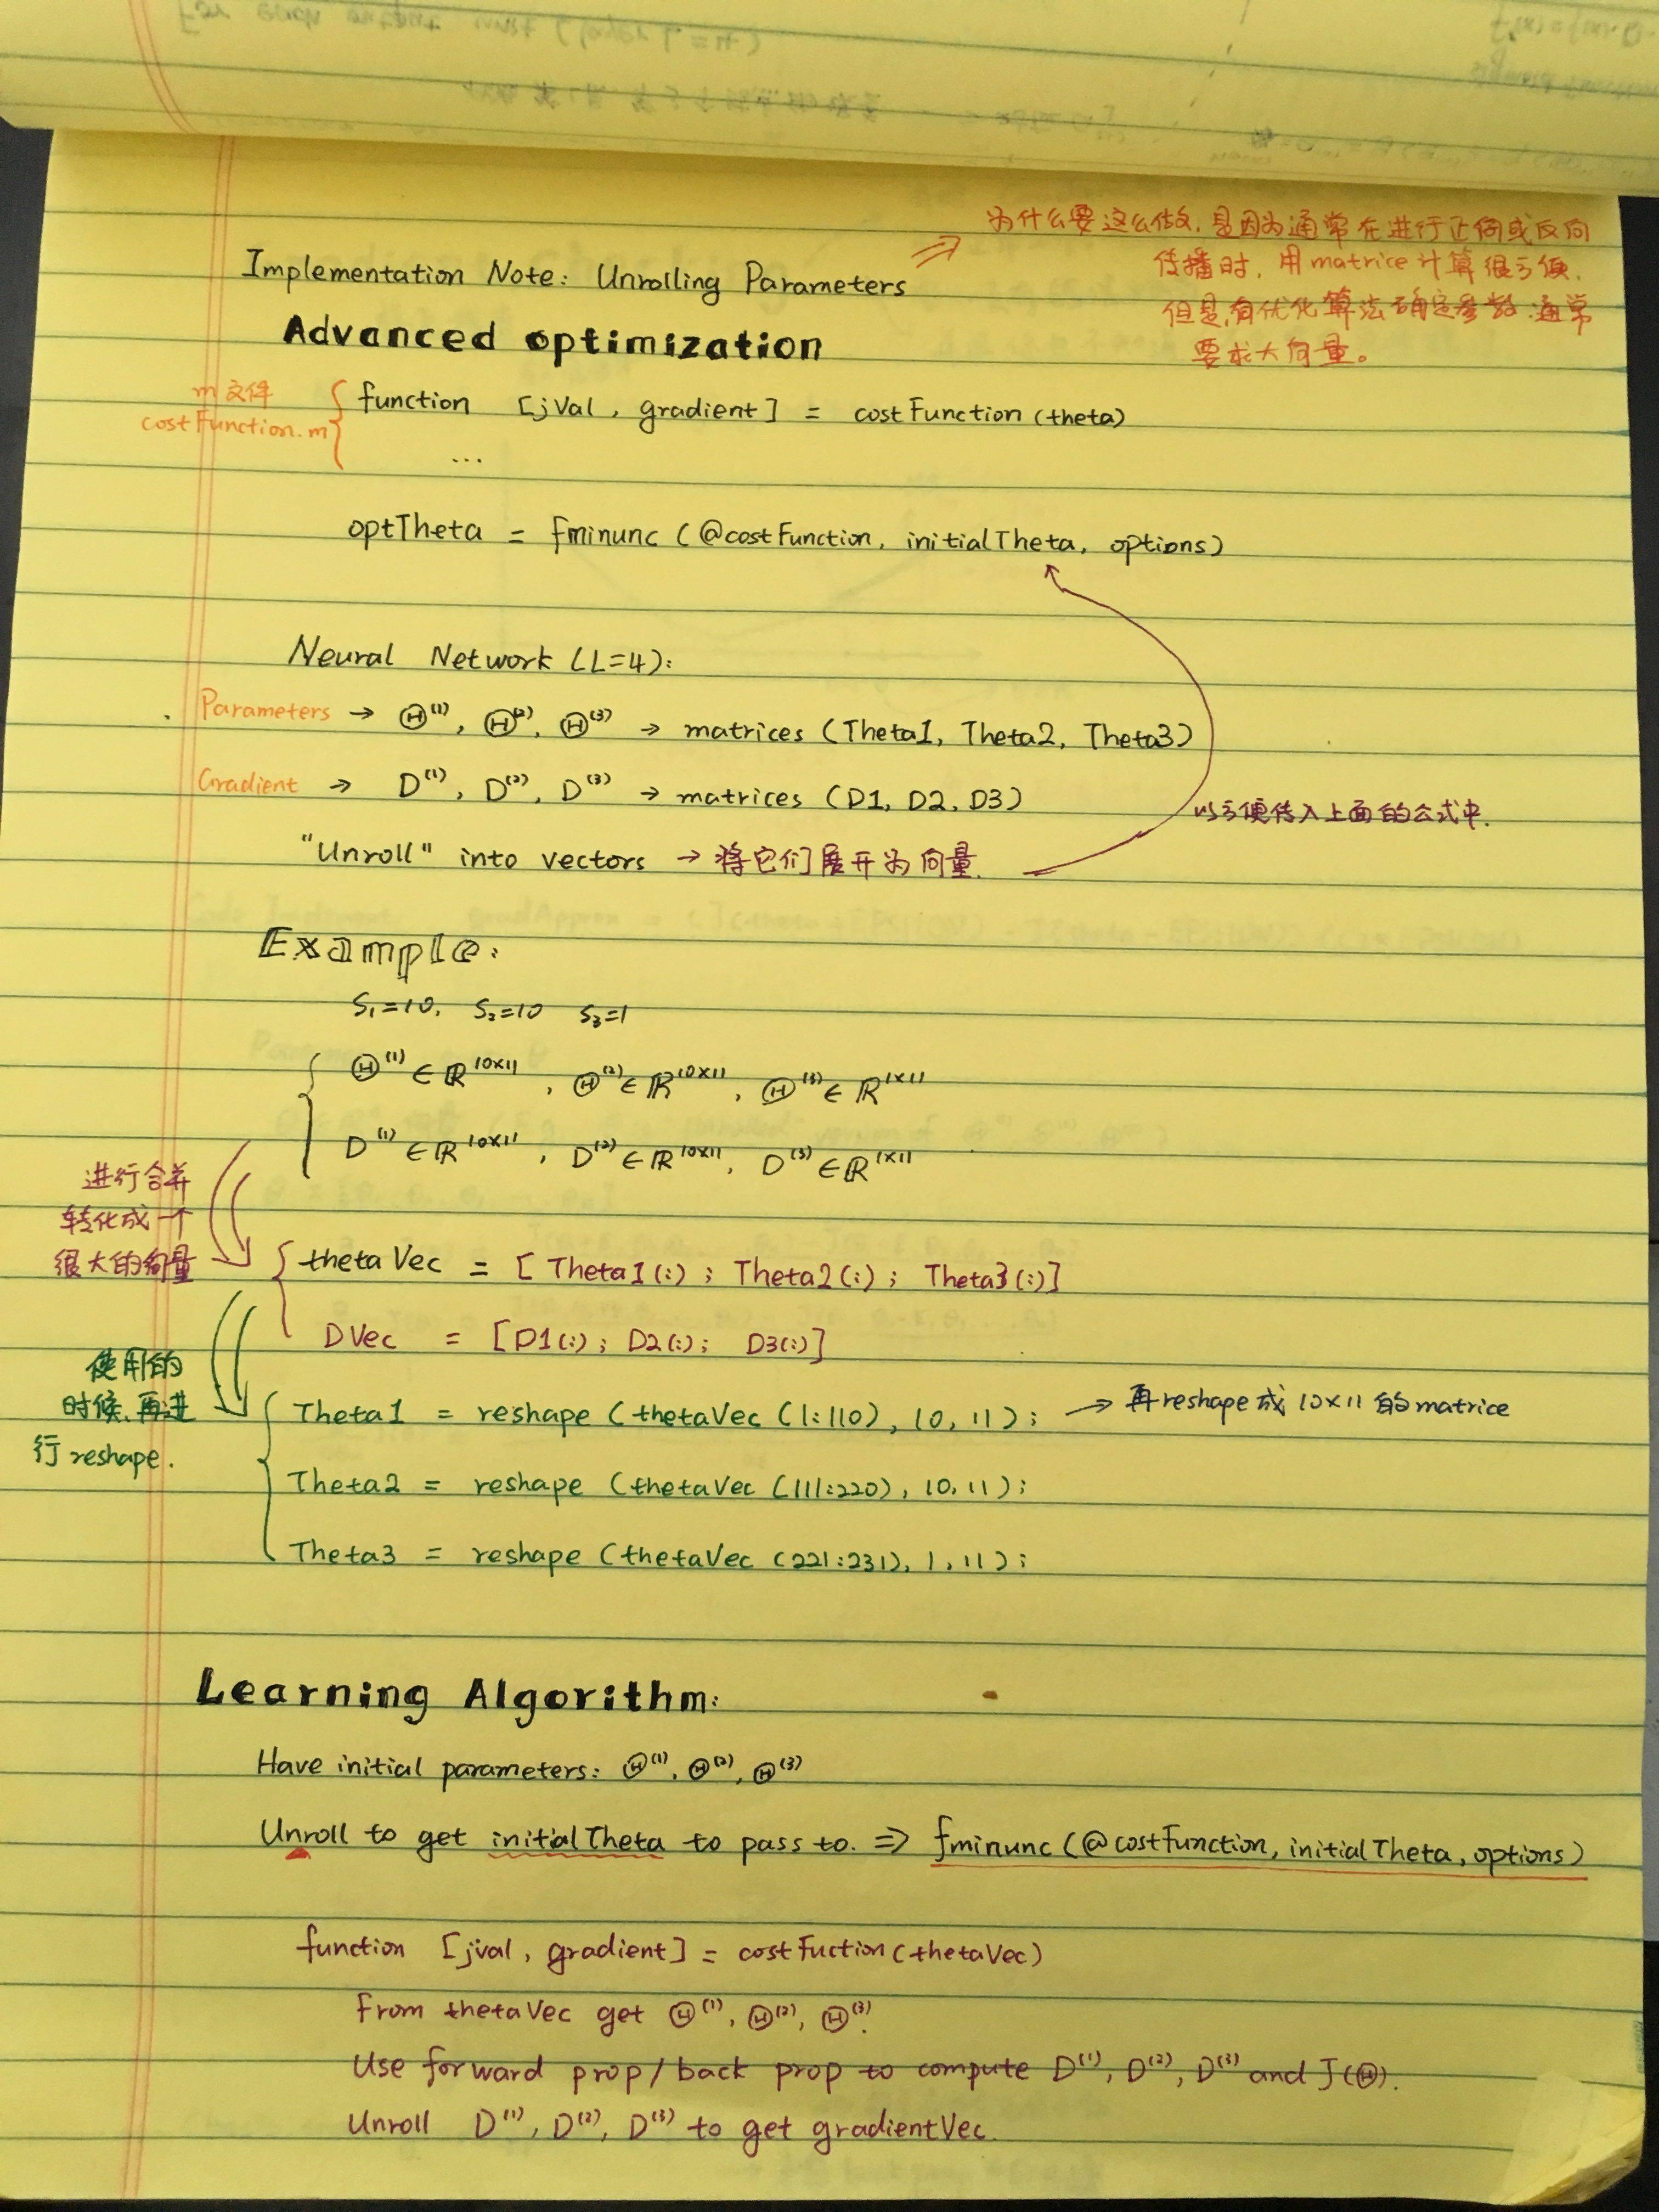 为什么要这么做,是因为通常在进行正向或反向
传播时,用matrice计算很方便,
但是,有优化算法确定参数,通常
要求大向量。
Implementation Note: Unrolling Parameters
Advanced optimization
m文件
costFunction.m
function [jVal, gradient] = costFunction(theta)
...
optTheta = fminunc(@costFunction, initialTheta, options)
Neural Network (L=4):
Parameters → Θ⁽¹⁾, Θ⁽²⁾, Θ⁽³⁾ → matrices (Theta1, Theta2, Theta3)
Gradient → D⁽¹⁾, D⁽²⁾, D⁽³⁾ → matrices (D1, D2, D3)
以方便传入上面的公式中.
"Unroll" into vectors → 将它们展开为向量.
Example:
S₁=10, S₂=10 S₃=1
Θ⁽¹⁾ ∈ ℝ¹⁰ˣ¹¹, Θ⁽²⁾ ∈ ℝ¹⁰ˣ¹¹, Θ⁽³⁾ ∈ ℝ¹ˣ¹¹
D⁽¹⁾ ∈ ℝ¹⁰ˣ¹¹, D⁽²⁾ ∈ ℝ¹⁰ˣ¹¹, D⁽³⁾ ∈ ℝ¹ˣ¹¹
进行合并
转化成一个
很大的向量
thetaVec = [Theta1(:); Theta2(:); Theta3(:)]
DVec = [D1(:); D2(:); D3(:)]
使用的
时候,再进
行reshape.
Theta1 = reshape(thetaVec(1:110), 10, 11); → 再reshape成10×11的matrice
Theta2 = reshape(thetaVec(111:220), 10, 11);
Theta3 = reshape(thetaVec(221:231), 1, 11);
Learning Algorithm:
Have initial parameters: Θ⁽¹⁾, Θ⁽²⁾, Θ⁽³⁾
Unroll to get initialTheta to pass to. ⇒ fminunc(@costFunction, initialTheta, options)
function [jval, gradient] = costFuction(thetaVec)
From thetaVec get Θ⁽¹⁾, Θ⁽²⁾, Θ⁽³⁾.
Use forward prop/back prop to compute D⁽¹⁾, D⁽²⁾, D⁽³⁾ and J(Θ).
Unroll D⁽¹⁾, D⁽²⁾, D⁽³⁾ to get gradientVec.